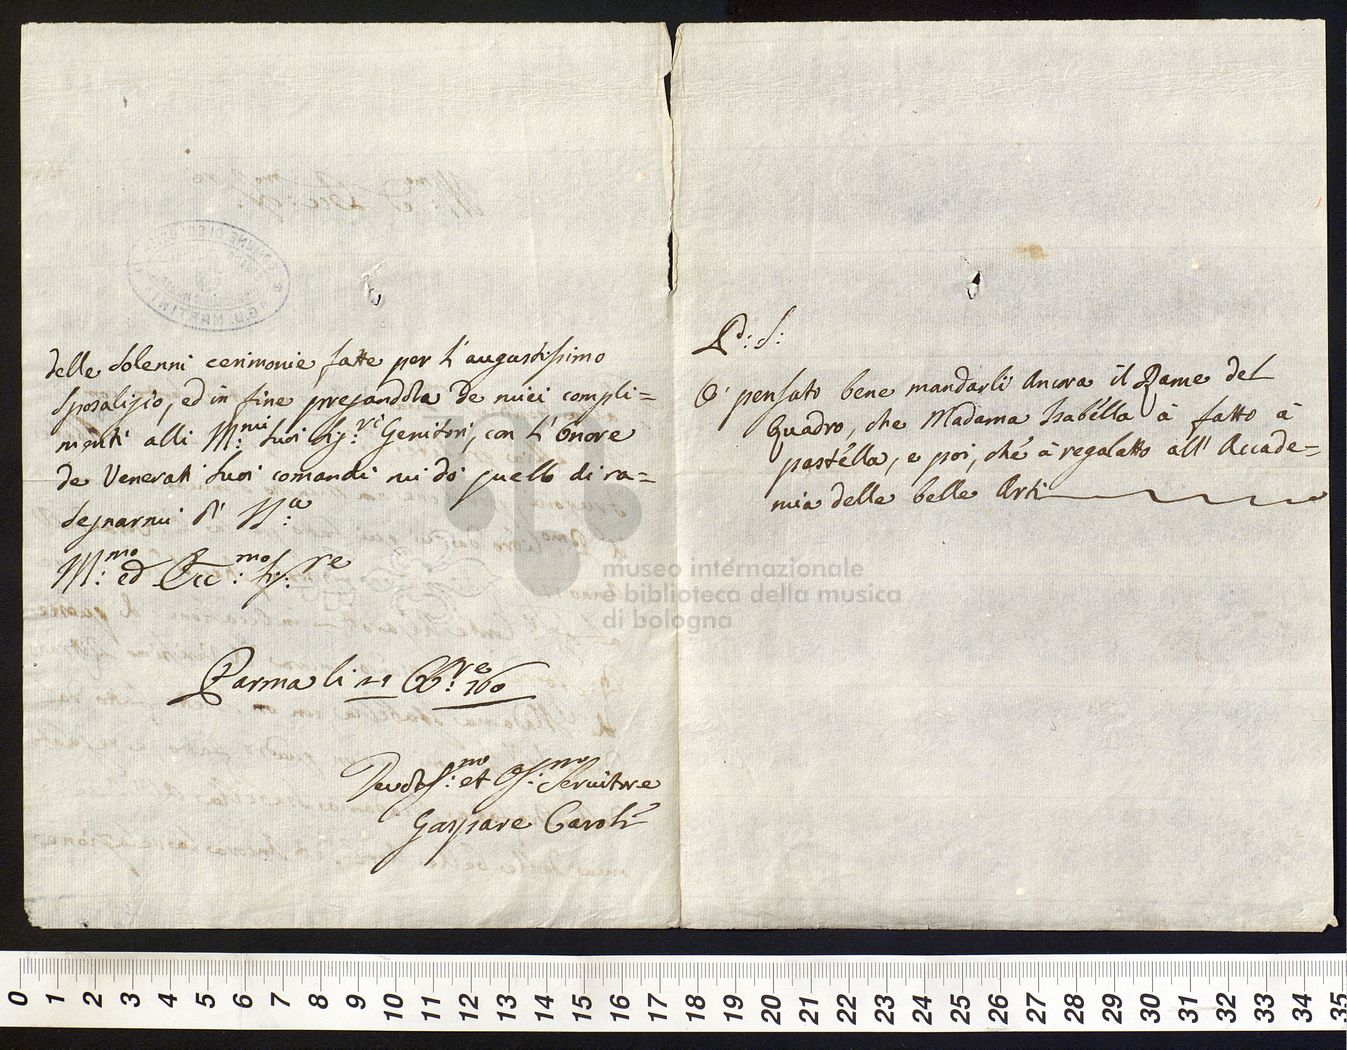 delle Solenni cerimonie fatte per l'augustissimo
Sposalizio, ed in fine pregandola de miei compli=
menti alli Suoi Sig.ri Genitori, con l'Onore
de Venerati Suoi comandi mi do quello di ra=
segnarmi di
Ecc.mo Sig.re
Parma li 21 760
Devotiss.mo et Obl.mo Servitore
Gaspare Caroli
P.d: S:
O' pensato bene mandarli ancora il Rame del
Quadro, che Madama Isabella à fatto à
pastella, e poi, che à regalatto all' Accade=
mia delle belle Arti
museo internazionale
e biblioteca della musica
di bologna
G.B. MARTINI
0 1 2 3 4 5 6 7 8 9 10 11 12 13 14 15 16 17 18 19 20 21 22 23 24 25 26 27 28 29 30 31 32 33 34 35